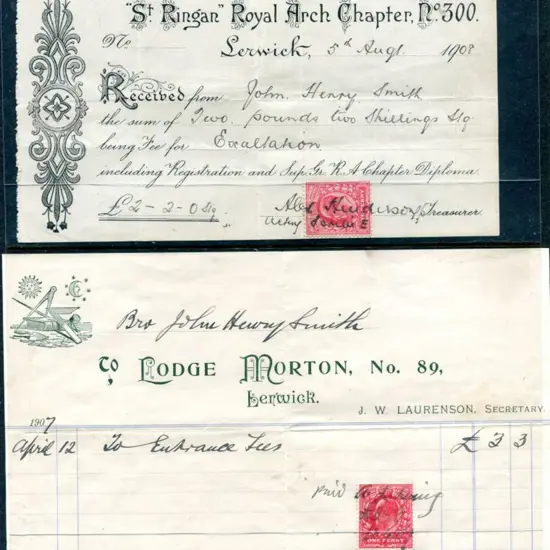 "St Ringan" Royal Arch Chapter, No. 300.
No
Lerwick, 5th Augt. 1908
Received from John Henry Smith
the sum of Two pounds two Shillings Stg
being Fee for Exaltation
including Registration and Sup. Gr. R. A. Chapter Diploma.
£2-2-0 Stg
Alex Henderson Treasurer.
Acting Scribe E
Bro John Henry Smith
To LODGE MORTON, No. 89,
Lerwick.
J. W. LAURENSON, SECRETARY.
1907
April 12 To Entrance Fees £3 3
Paid
ONE PENNY